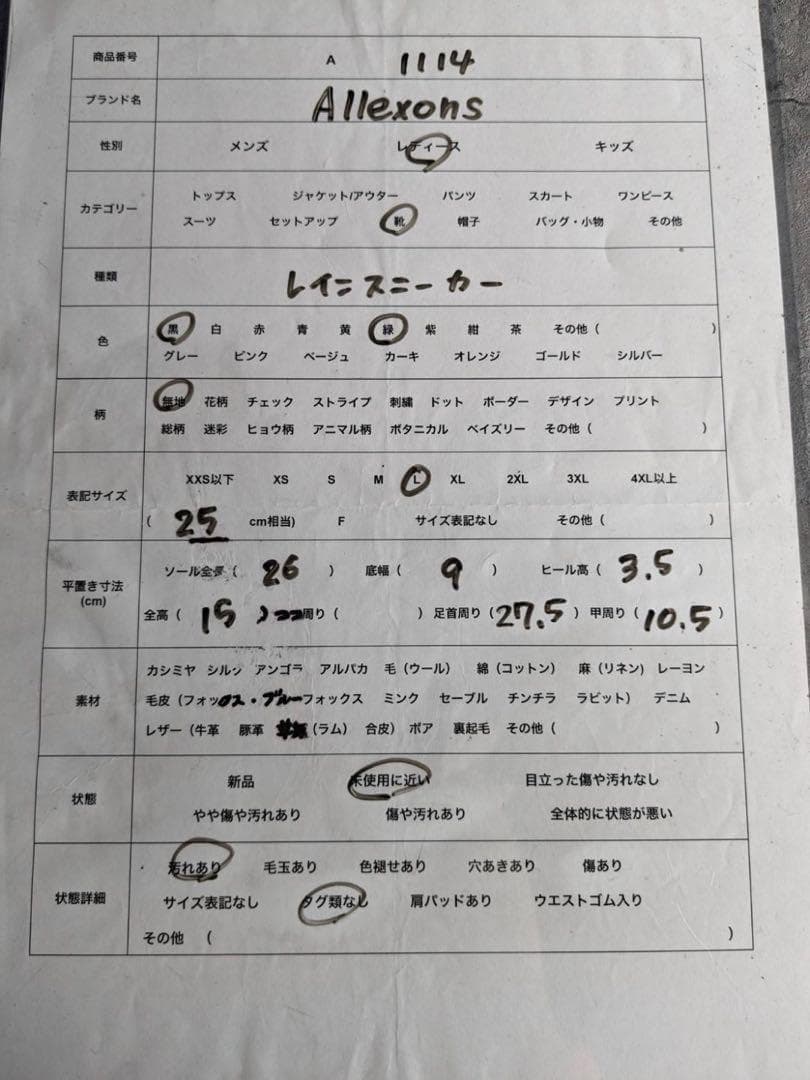 商品番号 A 1114
ブランド名 Allexons
性別 メンズ レディース キッズ
カテゴリー トップス ジャケット/アウター パンツ スカート ワンピース
スーツ セットアップ 靴 帽子 バッグ・小物 その他
種類 レインスニーカー
色 黒 白 赤 青 黄 緑 紫 紺 茶 その他 ( )
グレー ピンク ベージュ カーキ オレンジ ゴールド シルバー
柄 無地 花柄 チェック ストライプ 刺繍 ドット ボーダー デザイン プリント
総柄 迷彩 ヒョウ柄 アニマル柄 ボタニカル ペイズリー その他 ( )
表記サイズ XXS以下 XS S M L XL 2XL 3XL 4XL以上
( 25 cm相当) F サイズ表記なし その他 ( )
平置き寸法 (cm) ソール全長 ( 26 ) 底幅 ( 9 ) ヒール高 ( 3.5 )
全高 ( 15 ) 周り ( ) 足首周り ( 27.5 ) 甲周り ( 10.5 )
素材 カシミヤ シルク アンゴラ アルパカ 毛 (ウール) 綿 (コットン) 麻 (リネン) レーヨン
毛皮 (フォックス・ブルーフォックス ミンク セーブル チンチラ ラビット) デニム
レザー (牛革 豚革 (ラム) 合皮) ボア 裏起毛 その他 ( )
状態 新品 未使用に近い 目立った傷や汚れなし
やや傷や汚れあり 傷や汚れあり 全体的に状態が悪い
状態詳細 汚れあり 毛玉あり 色褪せあり 穴あきあり 傷あり
サイズ表記なし タグ類なし 肩パッドあり ウエストゴム入り
その他 ( )